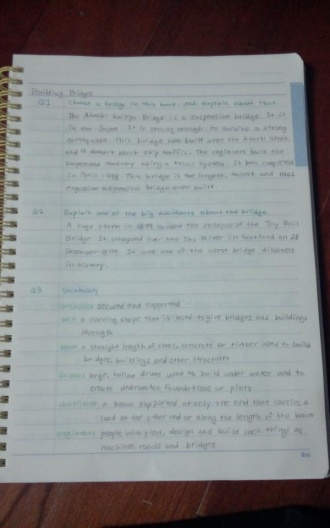 Building Bridges
Q1 Choose a bridge in this book, and explain about that
The Akashi Kaikyo Bridge is a suspension bridge. It is
in the Japan. It is strong enough to survive a strong
earthquake. This bridge was built over the Akashi Strait
and it doesn't block ship traffic. The engineers built the
suspended roadway using a truss system. It been completed
in April 1998. This bridge is the longest, tallest and most
expensive suspension bridge ever built.
Q2 Explain one of the big accidents about the bridge.
A huge storm in 1879 caused the collapse of the Tay Rail
Bridge. It collapsed over the Tay River in Scotland on 28
December 1879. It was one of the worst bridge disasters
in history.
Q3 Vocabulary
secured and supported
arch a curving shape that is used to give bridges and buildings
strength
beam a straight length of steel, concrete or timber used to build
bridges, buildings and other structures
large, hollow drums used to build under water and to
create underwater foundations or piers
cantilever a beam supported at only one end that carries a
load at the other end or along the length of the beam
engineers people who plan, design and build such things as
machines, roads and bridges